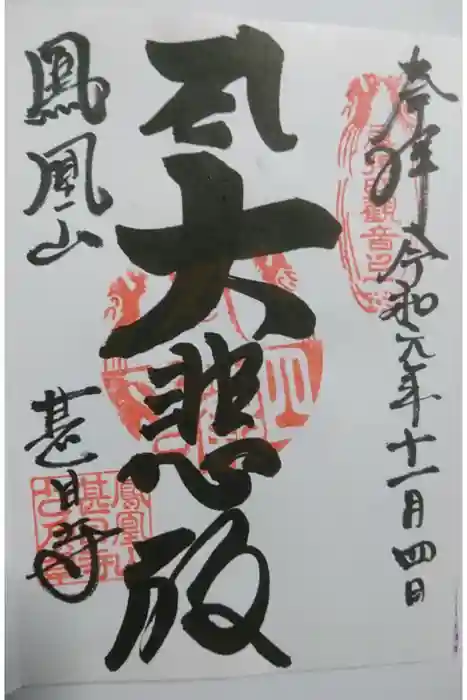 奉拝 令和元年十一月四日
大悲殿
鳳凰山 甚目寺
觀音
鳳凰山
甚目寺